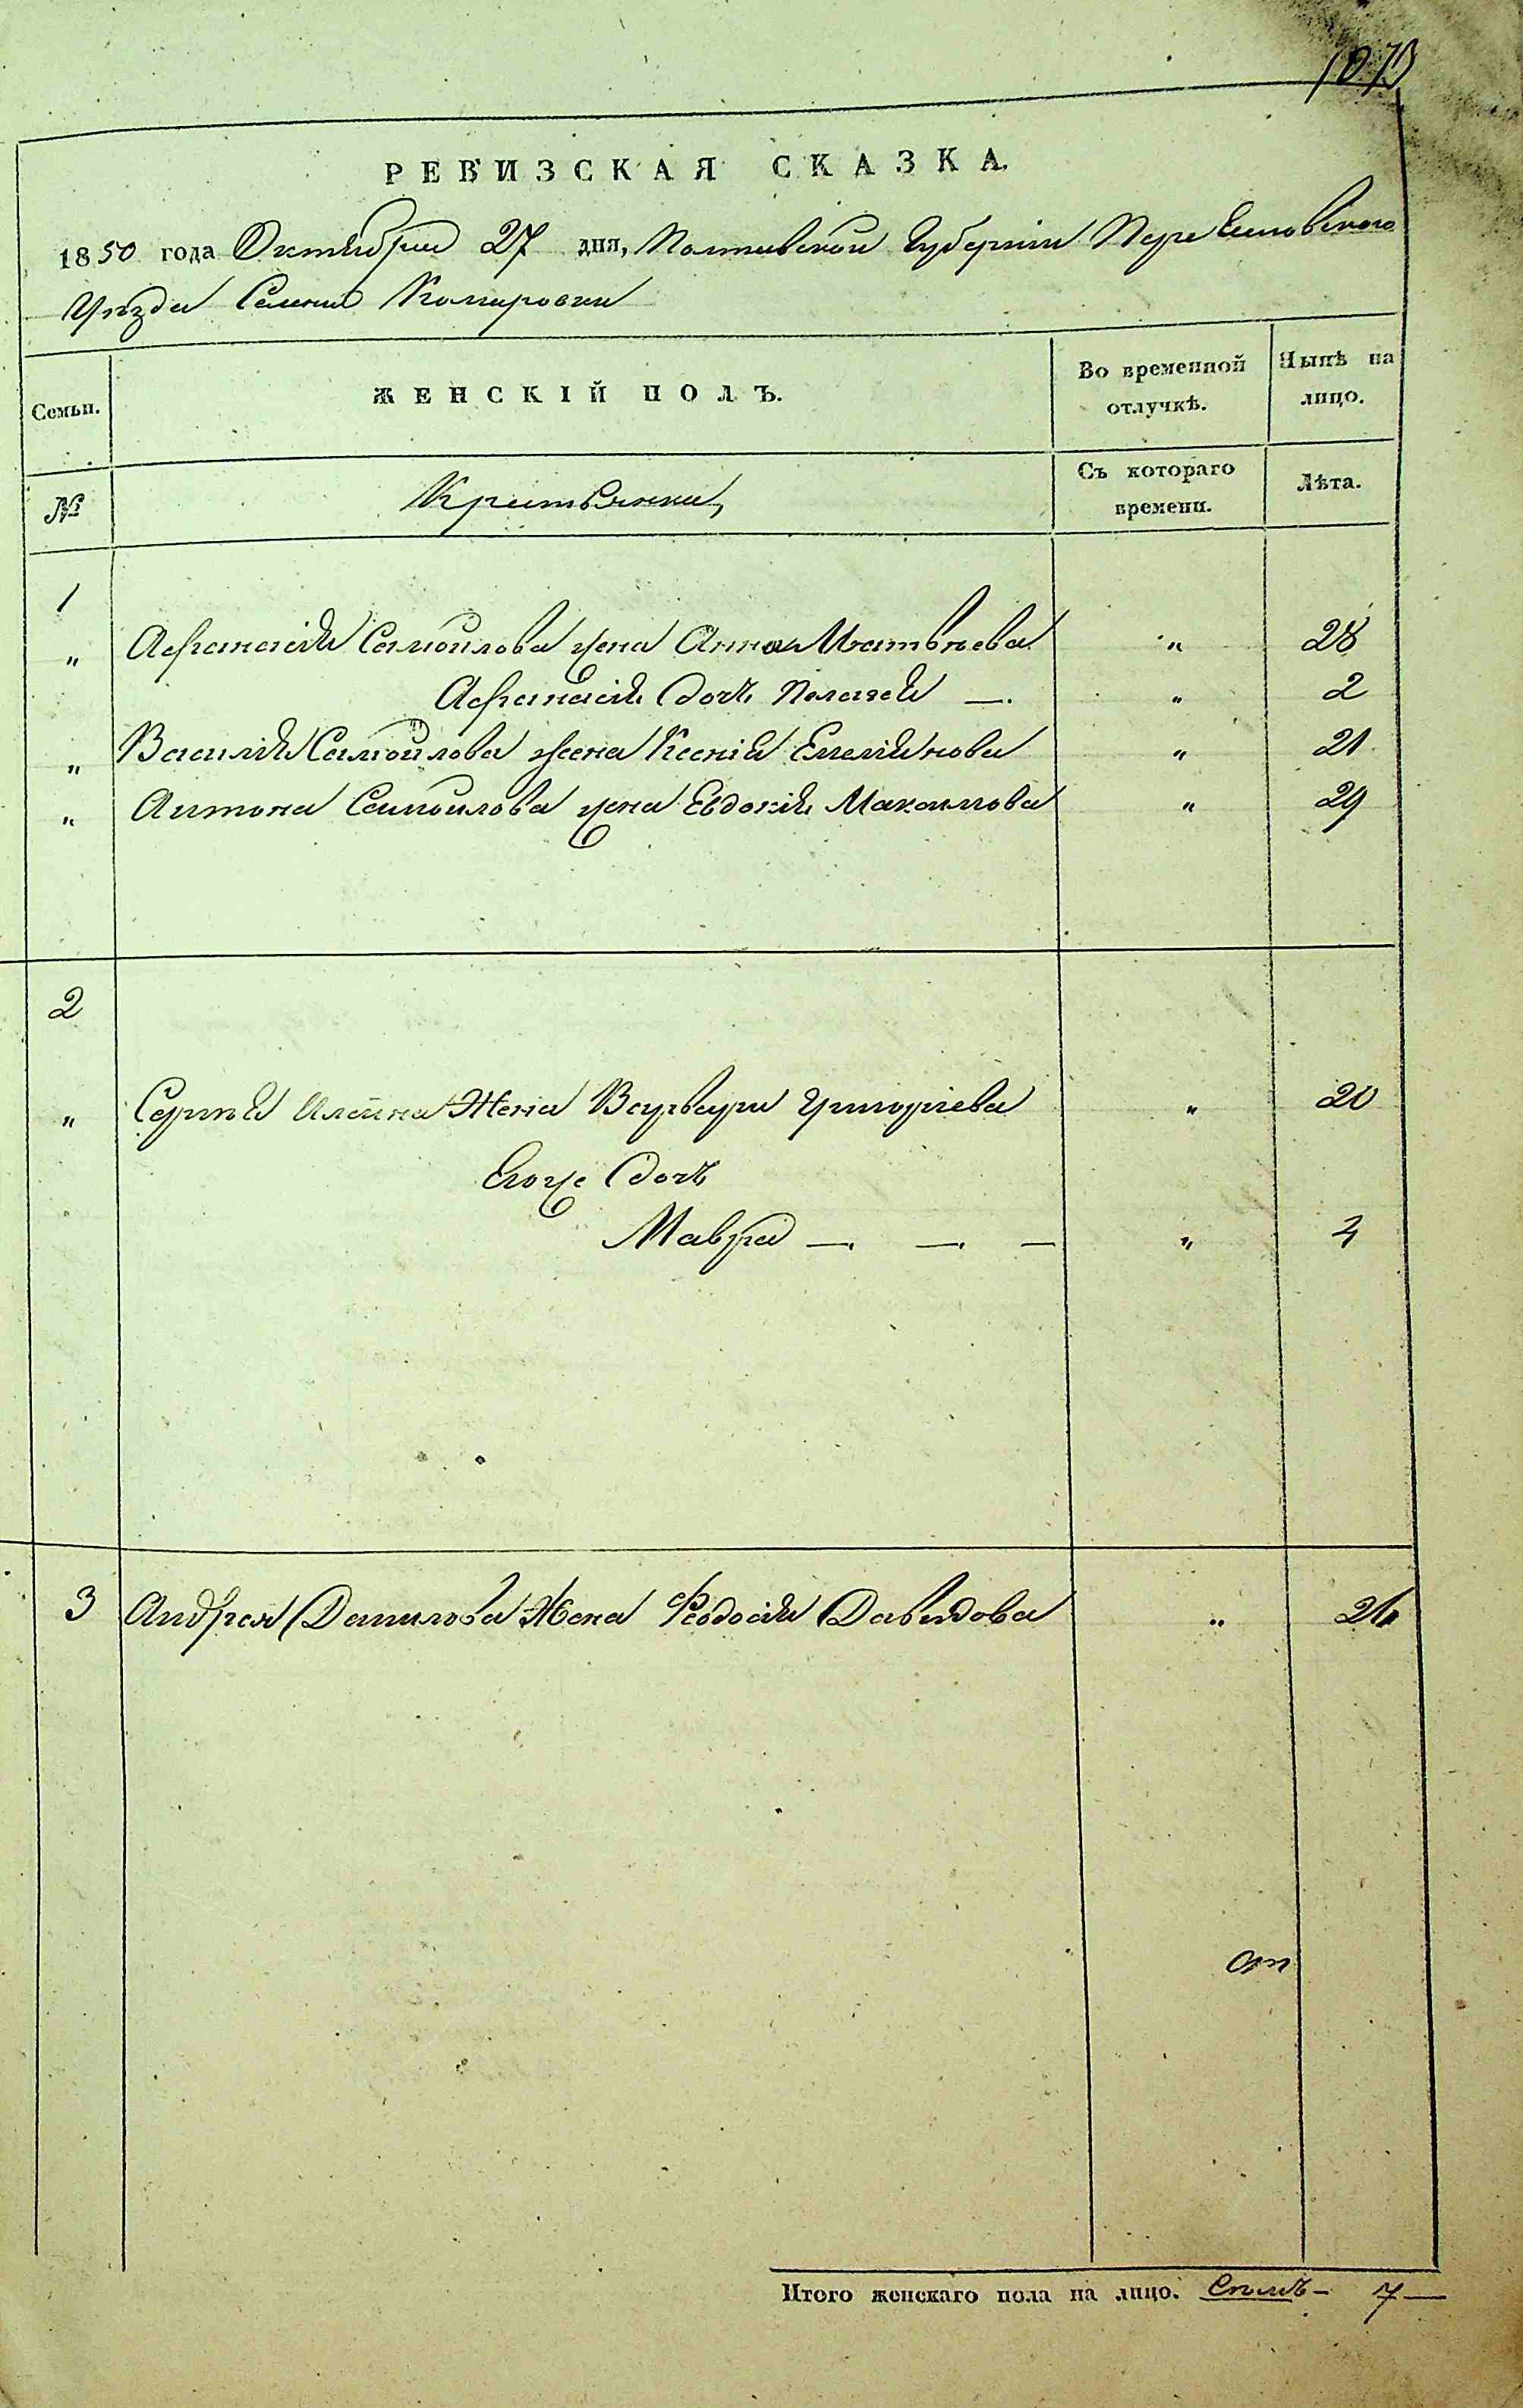 1073
РЕВИЗСКАЯ СКАЗКА.
1850 года Октября 27 дня, Полтавской Губернии Переяславского
Уезда Селения Комаровки
Семьи. ЖЕНСКІЙ ПОЛЪ. Во временной отлучкѣ. Нынѣ на лицо.
№ Крестьянки, Съ котораго времени. Лѣта.
1
„ Афанасія Самойлова жена Анна Матвѣева „ 28
Афанасія дочь Пелагея — „ 2
„ Василія Самойлова жена Ксенія Емеліянова „ 21
„ Антона Самойлова жена Евдокія Максимова „ 29
2
„ Сергѣя жена Варвара Григоріева „ 20
Егоже дочь
Мавра — — — „ 4
3 Андрея Данилова жена Феодосія Давидова „ 26
Итого женскаго пола на лицо. Семь — 7 —